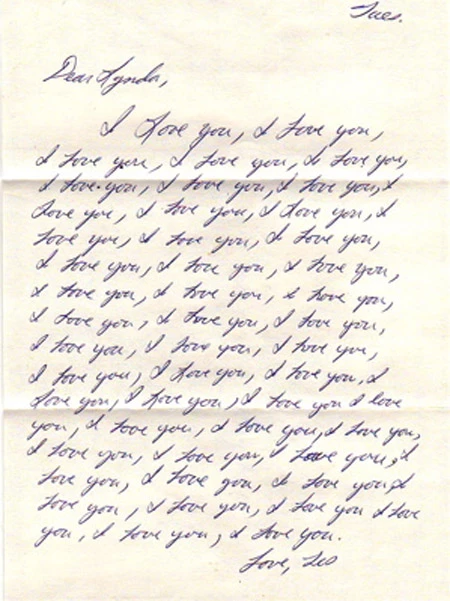 Tues.
Dear Lynda,
I love you, I love you,
I love you, I love you, I love you,
I love you, I love you, I love you, I
love you, I love you, I love you, I
love you, I love you, I love you,
I love you, I love you, I love you,
I love you, I love you, I love you,
I love you, I love you, I love you,
I love you, I love you, I love you,
I love you, I love you, I love you, I
love you, I love you, I love you I love
you, I love you, I love you, I love you,
I love you, I love you, I love you, I
love you, I love you, I love you, I
love you, I love you, I love you I love
you, I love you, I love you.
Love, Leo